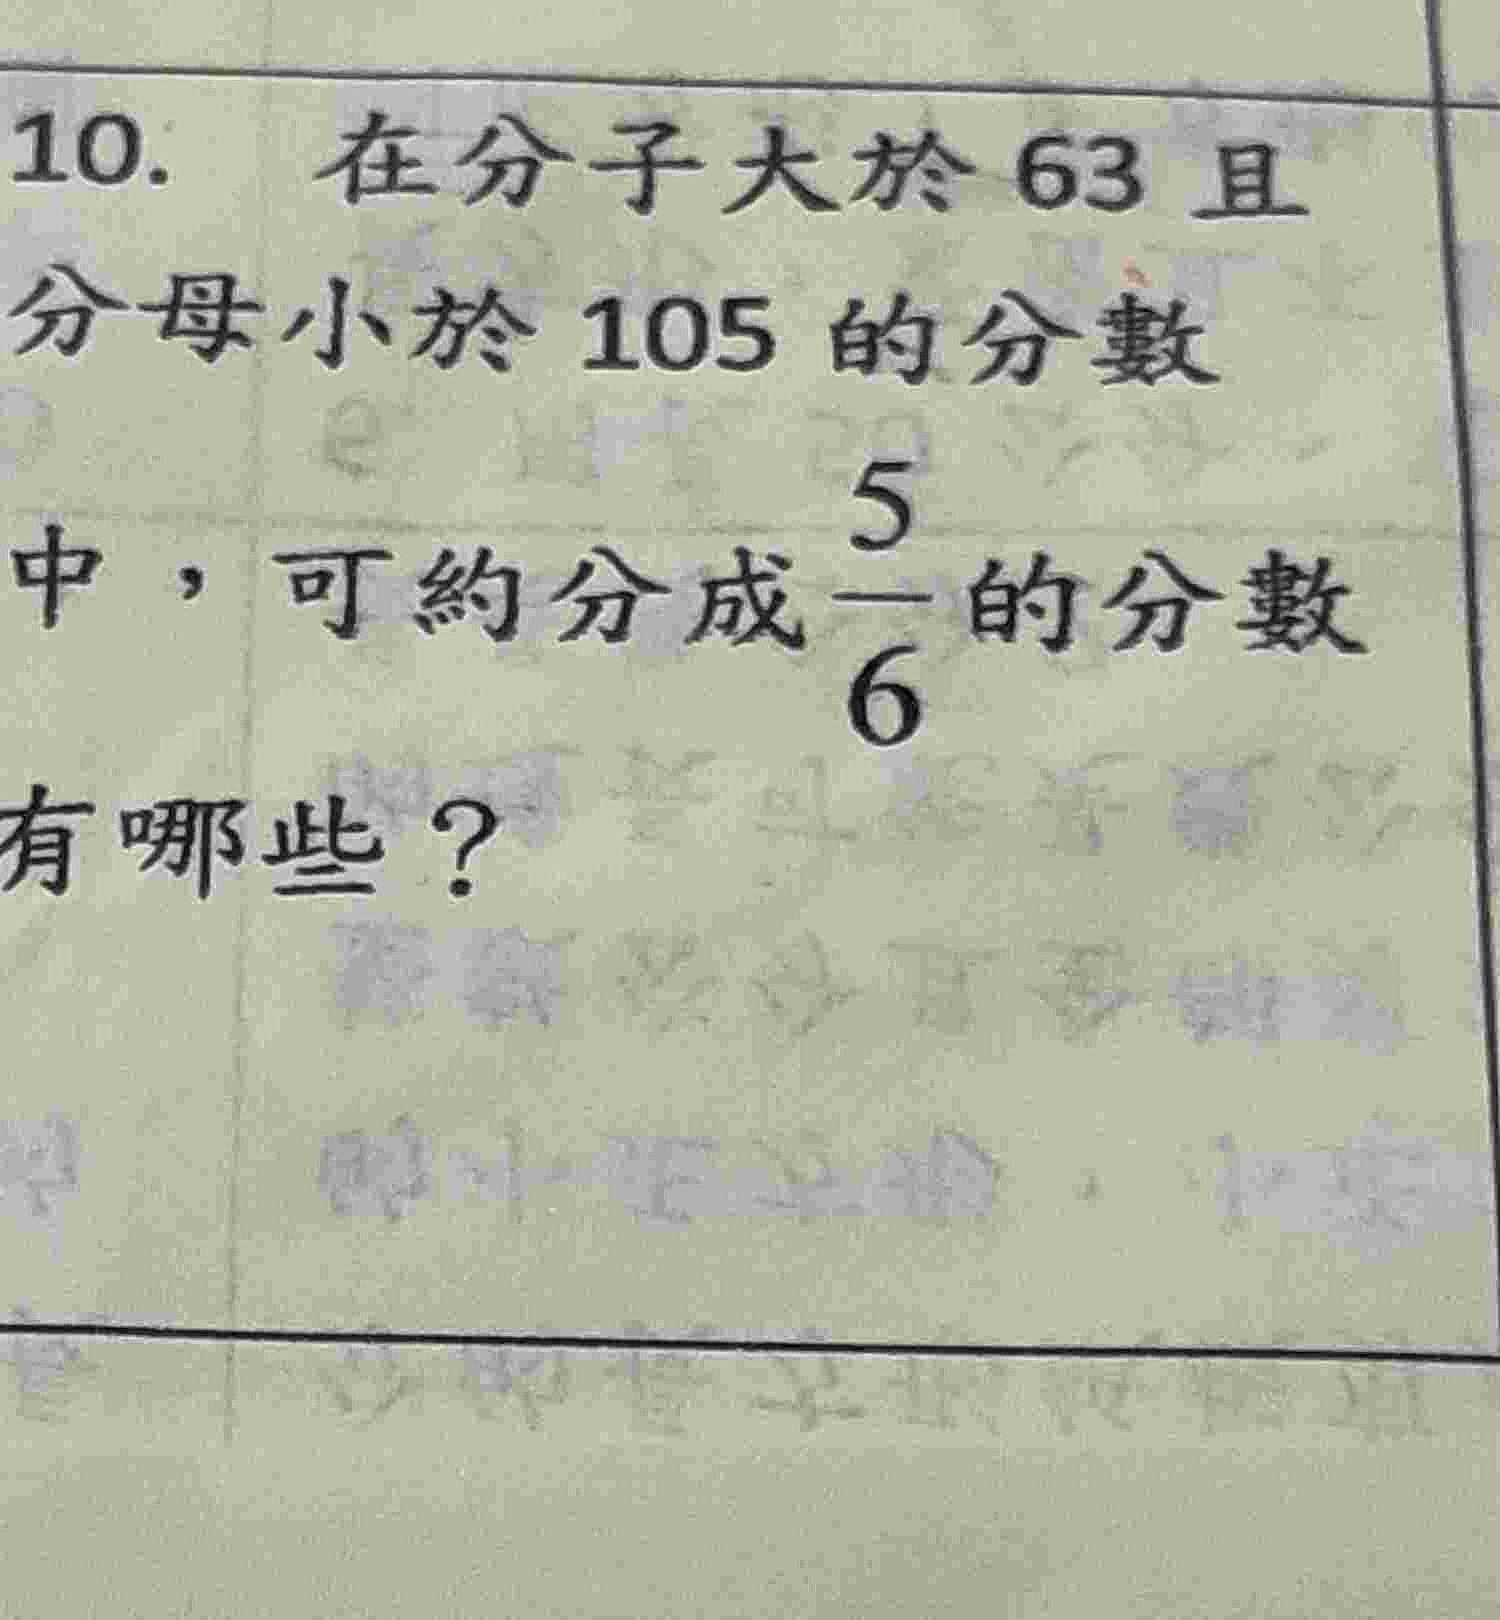 10. 在分子大於 63 且
分母小於 105 的分數
中，可約分成 5/6 的分數
有哪些？